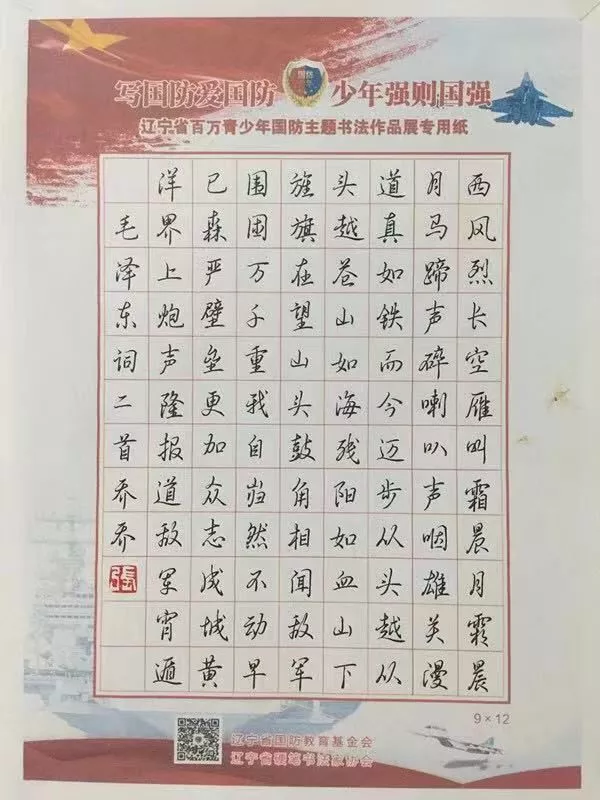 写国防爱国防 国防 少年强则国强
辽宁省百万青少年国防主题书法作品展专用纸
西风烈长空雁叫霜晨月霜晨
月马蹄声碎喇叭声咽雄关漫
道真如铁而今迈步从头越从
头越苍山如海残阳如血山下
旌旗在望山头鼓角相闻敌军
围困万千重我自岿然不动早
已森严壁垒更加众志成城黄
洋界上炮声隆报道敌军宵遁
毛泽东词二首乔乔
张
9×12
辽宁省国防教育基金会
辽宁省硬笔书法家协会